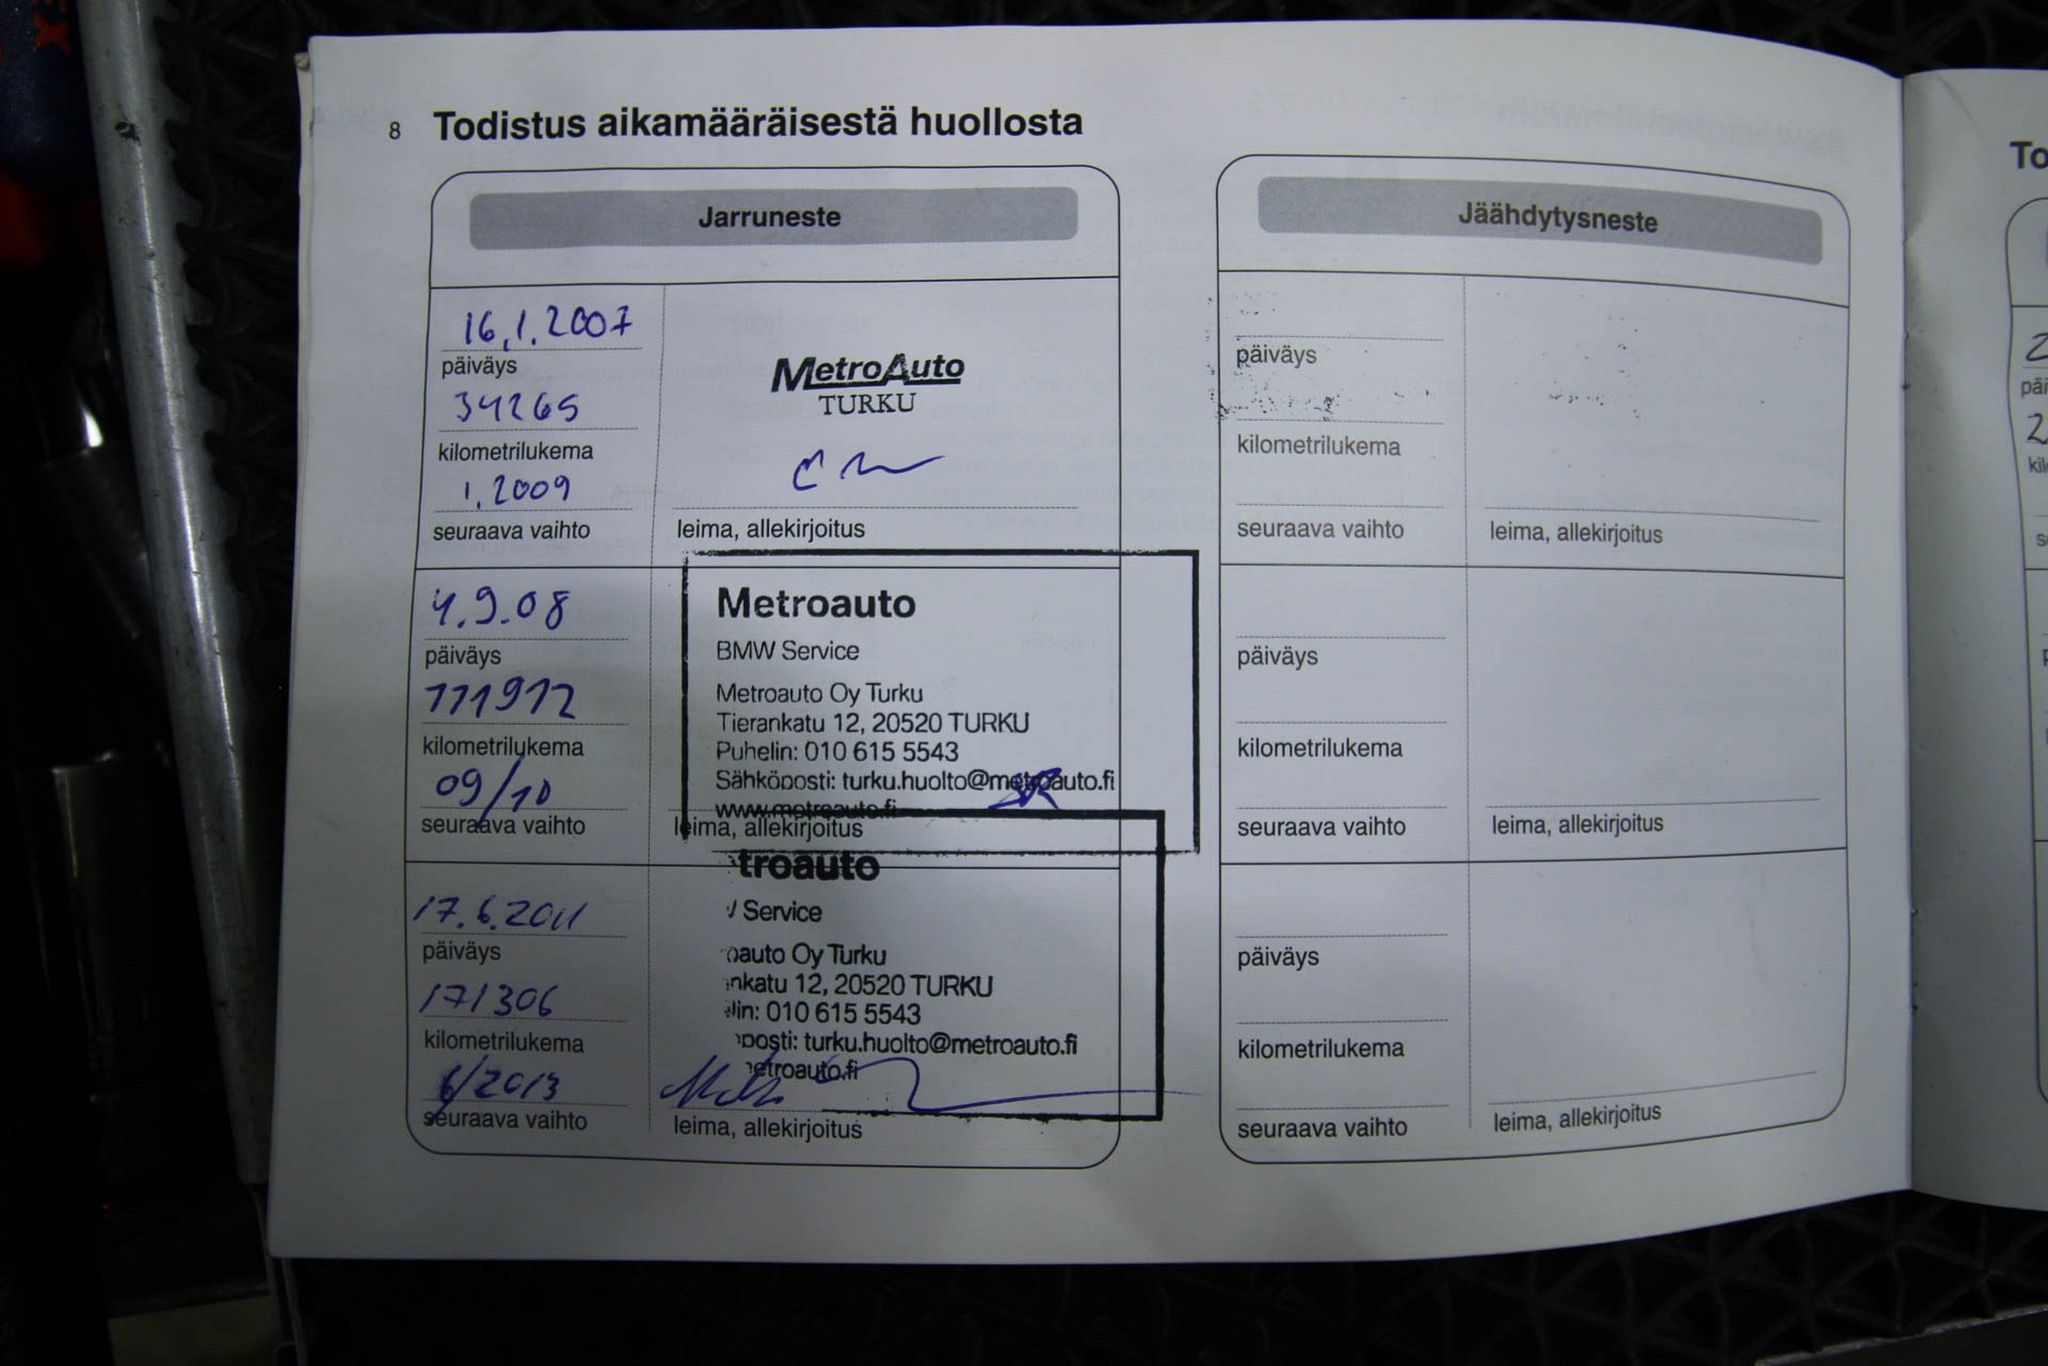 8 Todistus aikamääräisestä huollosta
Jarruneste
16.1.2007
päiväys
34265
kilometrilukema
1.2009
seuraava vaihto
MetroAuto
TURKU
leima, allekirjoitus
4.9.08
päiväys
111912
kilometrilukema
09/10
seuraava vaihto
Metroauto
BMW Service
Metroauto Oy Turku
Tierankatu 12, 20520 TURKU
Puhelin: 010 615 5543
Sähköposti: turku.huolto@metroauto.fi
www.metroauto.fi
leima, allekirjoitus
17.6.2011
päiväys
171306
kilometrilukema
6/2013
seuraava vaihto
troauto
Service
oauto Oy Turku
nkatu 12, 20520 TURKU
lin: 010 615 5543
posti: turku.huolto@metroauto.fi
etroauto.fi
leima, allekirjoitus
Jäähdytysneste
päiväys
kilometrilukema
seuraava vaihto
leima, allekirjoitus
päiväys
kilometrilukema
seuraava vaihto
leima, allekirjoitus
päiväys
kilometrilukema
seuraava vaihto
leima, allekirjoitus
To